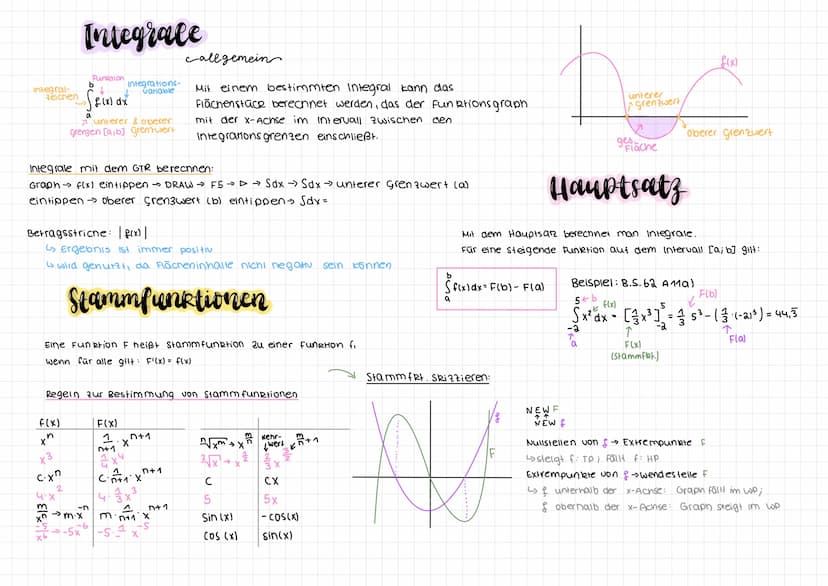 Integrale
allgemein
Funktion
Integral-
zeichen
Integrations-
variable
b
∫ f(x) dx
a
unterer & oberer
grenzen [a,b] Grenzwert
Mit einem bestimmten Integral kann das
Flächenstück berechnet werden, das der Funktionsgraph
mit der x-Achse im Intervall zwischen den
Integrationsgrenzen einschließt.
f(x)
unterer
Grenzwert
oberer Grenzwert
ges.
Fläche
Integrale mit dem GTR berechnen:
Graph → f(x) eintippen → DRAW → F5 → ▷ → Sdx → Sdx → unterer Grenzwert (a)
eintippen → oberer Grenzwert (b) eintippen → Sdx =
Betragsstriche: |f(x)|
↳ Ergebnis ist immer positiv
↳ wird genutzt, da Flächeninhalte nicht negativ sein können
Hauptsatz
Mit dem Hauptsatz berechnet man Integrale.
Für eine steigende Funktion auf dem Intervall [a;b] gilt:
b
∫ f(x)dx = F(b) - F(a)
a
Beispiel: B.S.62 A11a)
5 ← b f(x) F(b)
∫ x² dx = [1/3 x³]⁵₋₂ = 1/3 5³ - (1/3 · (-2)³) = 44,3̅
-2
a F(x) F(a)
(Stammfkt.)
Stammfunktionen
Eine Funktion F heißt Stammfunktion zu einer Funktion f,
wenn für alle gilt: F'(x) = f(x)
Regeln zur Bestimmung von Stammfunktionen
f(x) F(x)
xⁿ 1/n+1 · xⁿ⁺¹
x³ 1/4 x⁴
c·xⁿ c · 1/n+1 · xⁿ⁺¹
4·x² 4 · 1/3 x³
m/xⁿ → m·x⁻ⁿ m · 1/n+1 · xⁿ⁺¹
-5/x⁶ → -5x⁻⁶ -5 · 1/ x⁻⁵
Kehr-
wert
c cx
5 5x
sin(x) -cos(x)
cos(x) sin(x)
Stammfkt. skizzieren:
f
F
NEW F
NEW f
Nullstellen von f → Extrempunkte F
↳ steigt f: TP; fällt f: HP
Extrempunkte von f → Wendestelle F
↳ f unterhalb der x-Achse: Graph fällt im WP;
f oberhalb der x-Achse: Graph steigt im WP